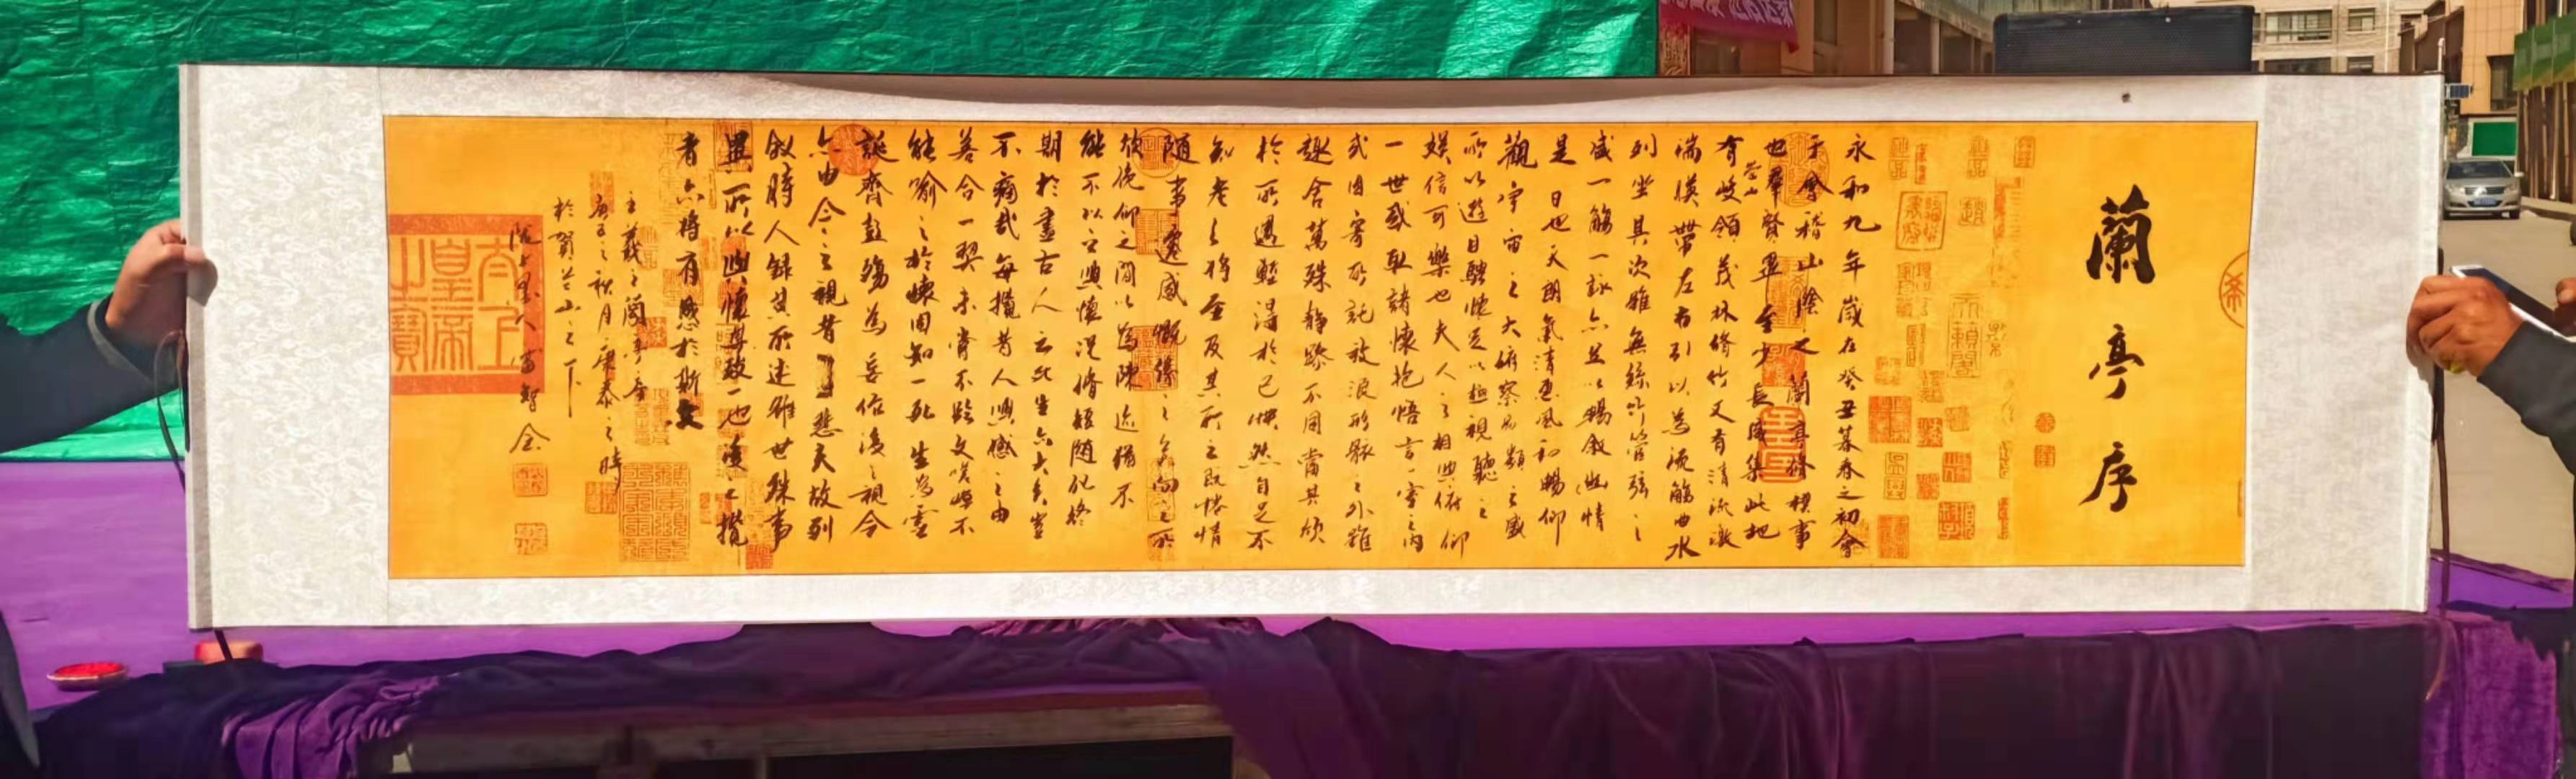 蘭亭序
永和九年歲在癸丑暮春之初會
于會稽山陰之蘭亭脩禊事
也羣賢畢至少長咸集此地
有崇山峻領茂林脩竹又有清流激
湍暎帶左右引以為流觴曲水
列坐其次雖無絲竹管弦之
盛一觴一詠亦足以暢敘幽情
是日也天朗氣清惠風和暢仰
觀宇宙之大俯察品類之盛
所以遊目騁懷足以極視聽之
娛信可樂也夫人之相與俯仰
一世或取諸懷抱悟言一室之內
或因寄所託放浪形骸之外雖
趣舍萬殊靜躁不同當其欣
於所遇蹔得於己怏然自足不
知老之將至及其所之既惓情
隨事遷感慨係之矣向之所
欣俛仰之閒以為陳迹猶不
能不以之興懷況脩短隨化終
期於盡古人云死生亦大矣豈
不痛哉每攬昔人興感之由
若合一契未嘗不臨文嗟悼不
能喻之於懷固知一死生為虛
誕齊彭殤為妄作後之視今
亦由今之視昔悲夫故列
敘時人錄其所述雖世殊事
異所以興懷其致一也後之攬
者亦將有感於斯文
王羲之蘭亭序
庚子之秋月康泰之時
於賀兰山之下
隴上墨人富智
太上皇帝之寶